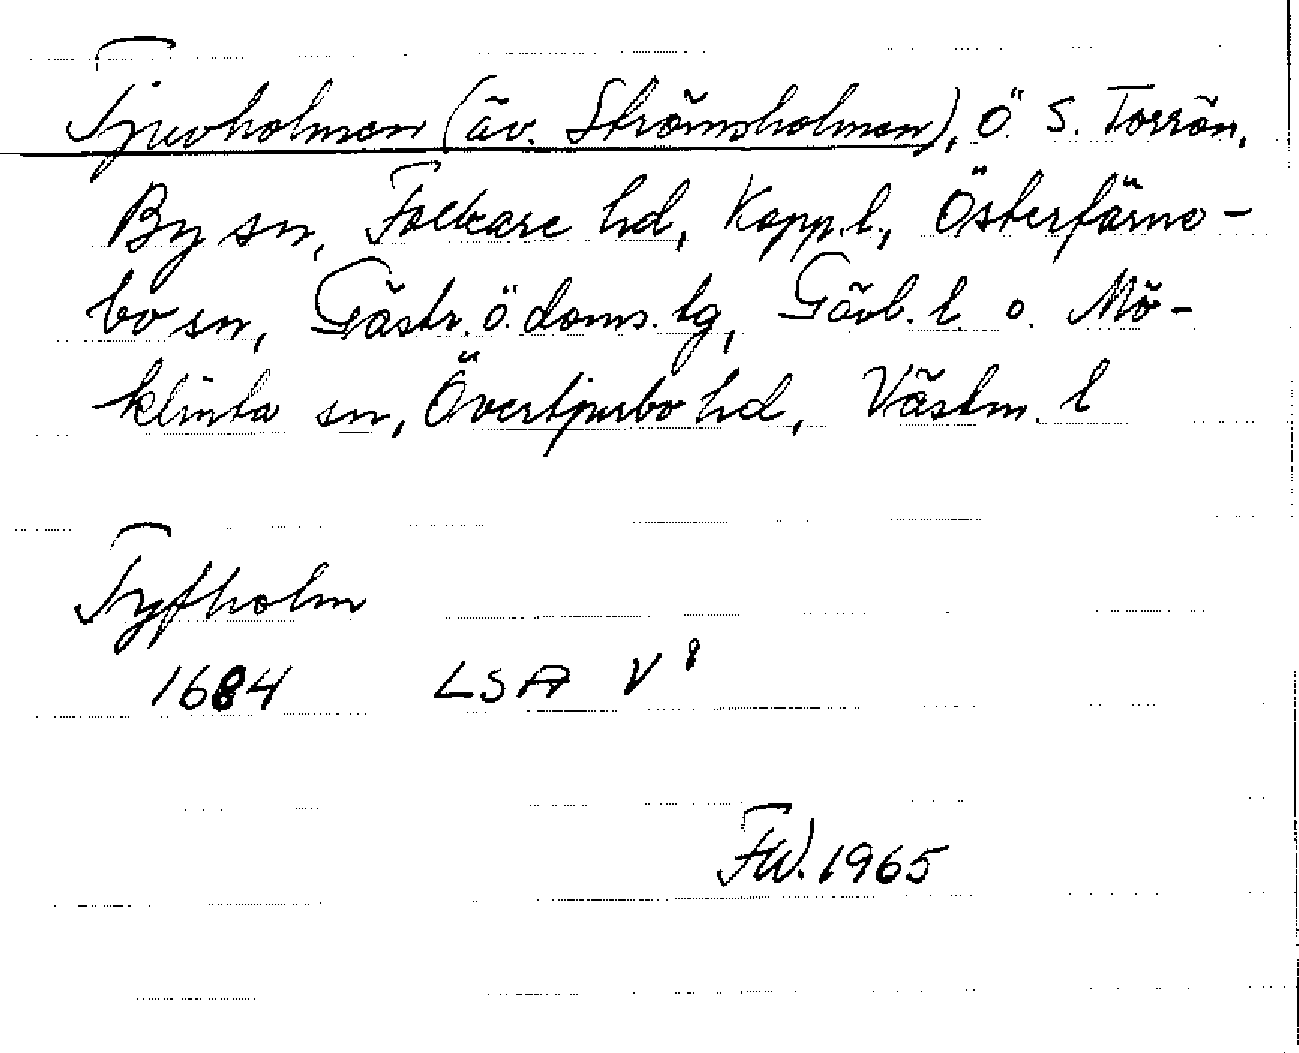 Tjuvholmen (äv. Strömsholmen), Ö S. Torrön,
By sn, Folkare hd, Kopp.l., Österfärne-
bo sn, Gästr. ö. doms. tg, Gävl. l. o. Mö-
klinta sn, Övertjurbo hd, Västm. l
Tyfholm
1684 LSA V⁸
FW. 1965